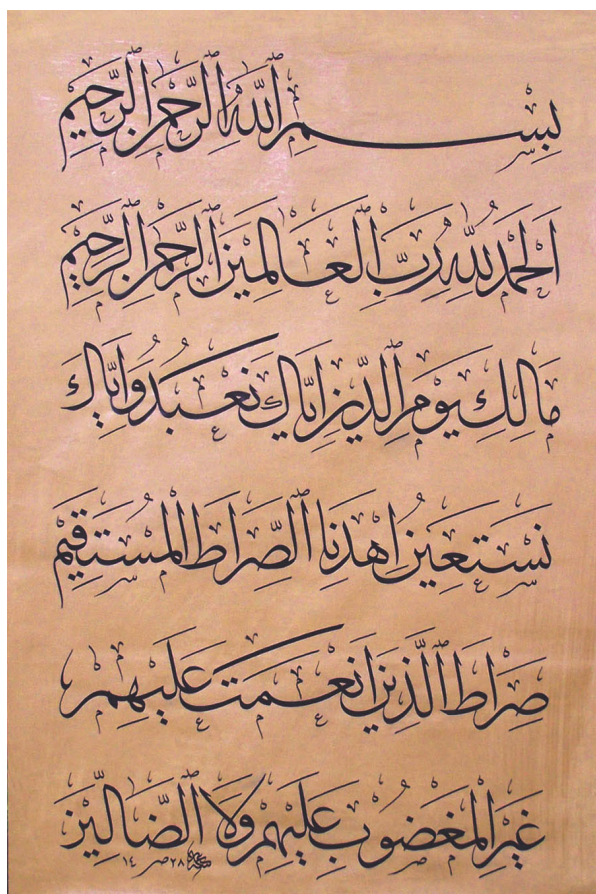 بِسْمِ ٱللّٰهِ ٱلرَّحْمٰنِ ٱلرَّحِيْمِ
اَلْحَمْدُ لِلّٰهِ رَبِّ ٱلْعَالَمِيْنَ ٱلرَّحْمٰنِ ٱلرَّحِيْمِ
مَالِكِ يَوْمِ ٱلدِّيْنِ اِيَّاكَ نَعْبُدُ وَاِيَّاكَ
نَسْتَعِيْنُ اِهْدِنَا ٱلصِّرَاطَ ٱلْمُسْتَقِيْمَ
صِرَاطَ ٱلَّذِيْنَ اَنْعَمْتَ عَلَيْهِمْ
غَيْرِ ٱلْمَغْضُوْبِ عَلَيْهِمْ وَلَا ٱلضَّالِّيْنَ